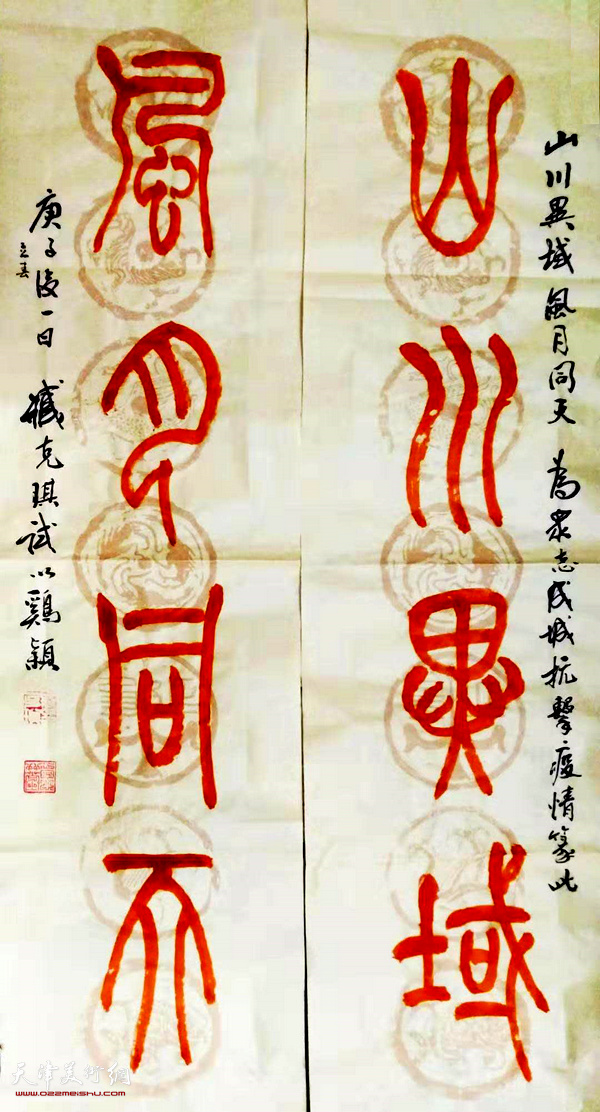 山川異域 風月同天 為眾志成城抗擊疫情篆此
山川異域
風月同天
庚子後一日 臧克琪試以鷄穎
立春
天津美术网
www.022meishu.com